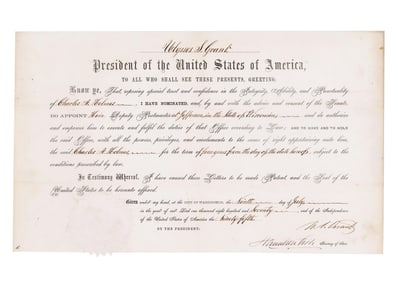 Ulysses S. Grant
President of the United States of America,
TO ALL WHO SHALL SEE THESE PRESENTS, GREETING:
Know ye, That reposing special trust and confidence in the Integrity, Ability, and Punctuality
of Charles A. Holmes I HAVE NOMINATED, and, by and with the advice and consent of the Senate,
DO APPOINT Him Deputy Postmaster at Jefferson, in the State of Wisconsin and do authorize
and empower him to execute and fulfil the duties of that Office according to Law; AND TO HAVE AND TO HOLD
the said Office, with all the powers, privileges, and emoluments to the same of right appertaining unto him,
the said Charles A. Holmes for the term of four years from the day of the date hereof, subject to the
conditions prescribed by law.
In Testimony Whereof, I have caused these Letters to be made Patent, and the Seal of the
United States to be hereunto affixed.
Given under my hand, at the CITY OF WASHINGTON, the Ninth day of July
in the year of our Lord one thousand eight hundred and Seventy and of the Independence
of the United States of America the Ninety fifth
U. S. Grant
BY THE PRESIDENT:
Secretary of State